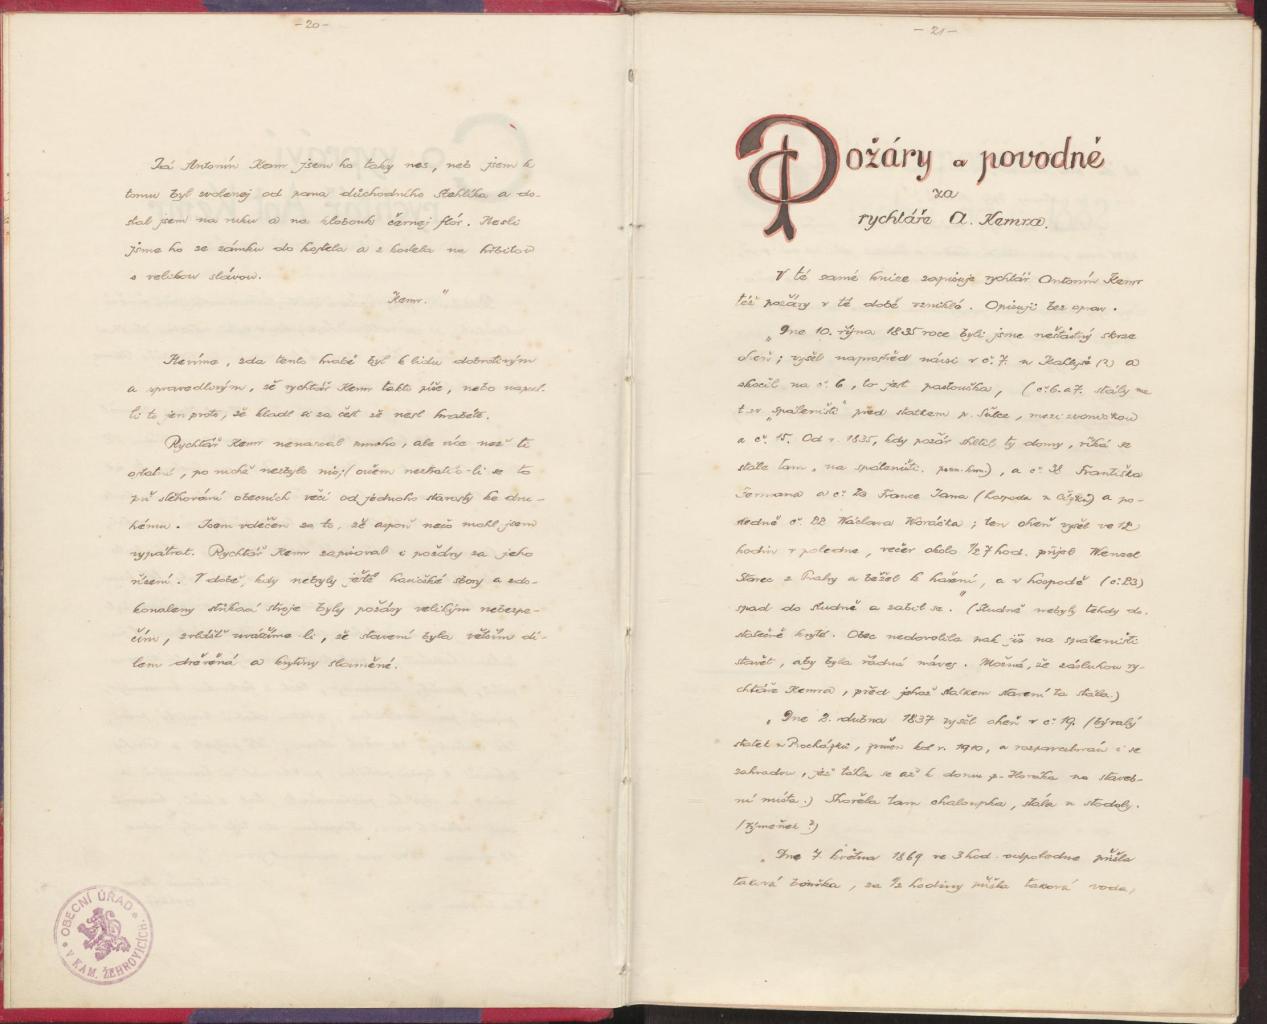 -20-
Já Antonín Kemr jsem ho taky nes, neb jsem k
tomu byl zvolenej od pana důchodního Stehlíka a do-
stal jsem na ruku a na klobouk černej flór. Nesli
jsme ho ze zámku do kostela a z kostela na hřbitov
s velikou slávou.
Kemr."
Nevíme, zda tento hrabě byl k lidu dobrotivým
a spravedlivým, že rychtář Kemr takto píše, nebo napsal-
li to jen proto, že kladl si za čest že nesl hraběte.
Rychtář Kemr nenapsal mnoho, ale více než ti
ostatní, po nichž nezbylo nic, (ovšem neztratilo-li se to
při stěhování obecních věcí od jednoho starosty ke dru-
hému. Jsem vděčen za to, že aspoň něco mohl jsem
vypátrat. Rychtář Kemr zapisoval i požáry za jeho
řízení. V době, kdy nebyly ještě hasičské sbory a zdo-
konaleny stříkací stroje byly požáry velikým nebezpe-
čím, zvláště uvážíme-li, že stavení byla větším dí-
lem dřevěná a krytiny slaměné.
OBECNÍ ÚŘAD
V KAM. ŽEHROVICÍCH.
-21-
Požáry a povodně
za
rychtáře A. Kemra.
V té samé knize zapisuje rychtář Antonín Kemr
též požáry v té době vzniklé. Opisuji bez oprav.
"Dne 10. října 1835 roce byli jsme neštastný skrze
oheň; vyšel naprostřed návsi v č. 7. u (?) a
skočil na č. 6, to jest pastouška, (č. 6. a 7. stály na
t. zv. "spáleništi" před statkem p. Šulce, mezi zvoničkou
a č. 15. Od r. 1835, kdy požár shltil ty domy, říká se
stále tam "na spáleništi. pozn. kron.), a č. 38 Františka
Germana a č. France Jana (hospoda u ) a po-
sledně č. 22 Václava Horáčka; ten oheň vyšel ve 12
hodin v poledne, večer okolo ½ 7 hod. přijel Wenzel
Starec z Prahy a běžel k hašení, a v hospodě (č. 23)
spad do studně a zabil se." (Studně nebyly tehdy do-
statečně kryté. Obec nedovolila pak již na spáleništi
stavět, aby byla řádná náves. Možná, že zásluhou ry-
chtáře Kemra, před jehož statkem stavení ta stála.)
"Dne 2. dubna 1837 vyšel oheň v č. 19. (bývalý
statek u Procházků, kol r. 1910, a rozparcelován i se
zahradou, jež táhla se až k domu p. Horáka na staveb-
ní místa.) Shořela tam chaloupka, stála u stodoly.
(Výměnek?)
"Dne 7. května 1869 ve 3 hod. odpoledne přišla
taková bouřka, za ½ hodiny přišla taková voda,